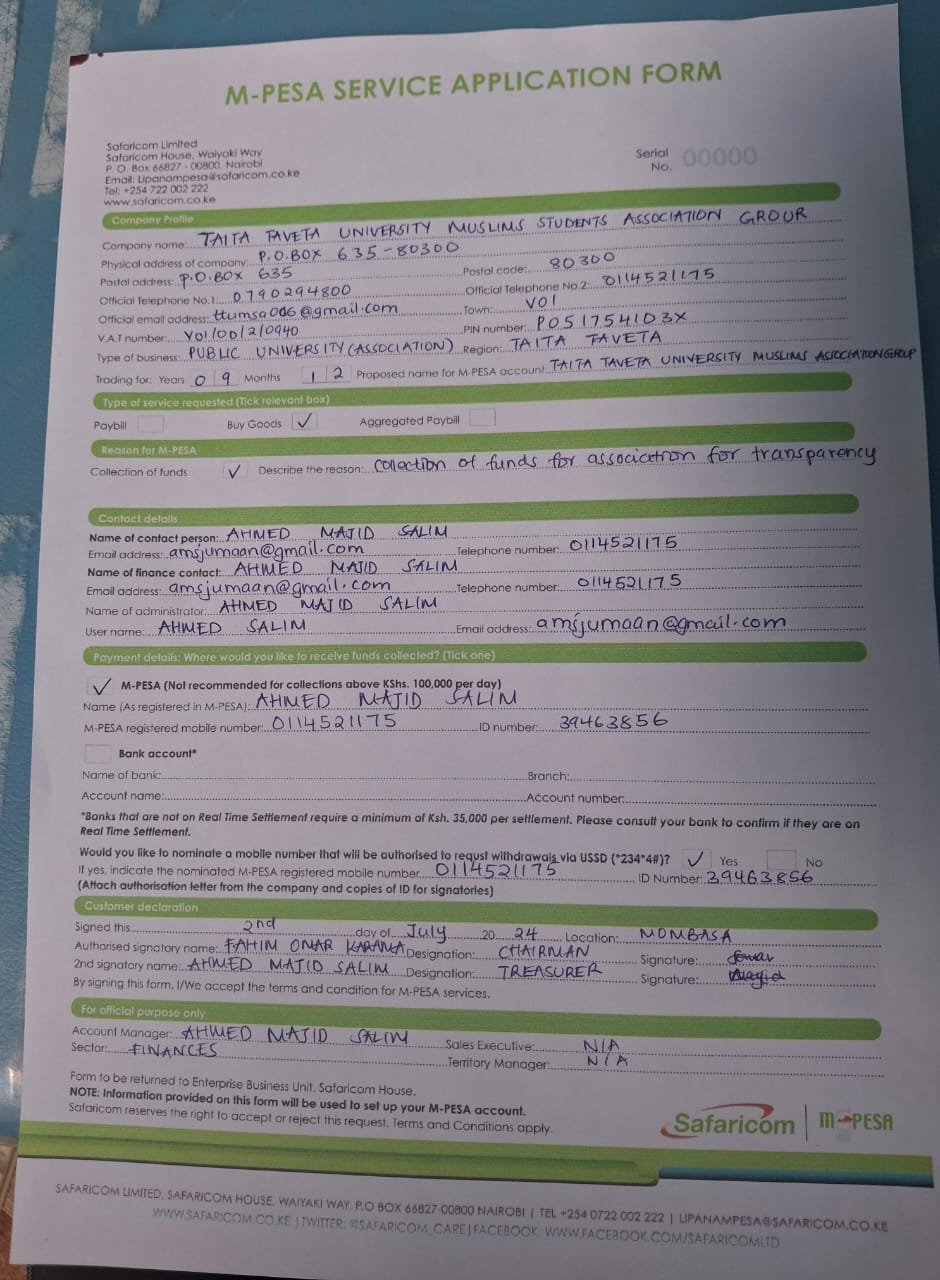 M-PESA SERVICE APPLICATION FORM
Safaricom Limited
Safaricom House, Waiyaki Way
P. O. Box 66827 - 00800, Nairobi
Email: Lipanampesa@safaricom.co.ke
Tel: +254 722 002 222
www.safaricom.co.ke
Serial No. 00000
Company Profile
Company name: TAITA TAVETA UNIVERSITY MUSLIMS STUDENTS ASSOCIATION GROUP
Physical address of company: P.O.BOX 635-80300
Postal address: P.O.BOX 635 Postal code: 80300
Official Telephone No.1: 0790294800 Official Telephone No.2: 0114521175
Official email address: ttumsa006@gmail.com Town: VOI
V.A.T number: VOI/00/2/0940 PIN number: P051754103X
Type of business: PUBLIC UNIVERSITY (ASSOCIATION) Region: TAITA TAVETA
Trading for: Years 0 9 Months 1 2 Proposed name for M-PESA account: TAITA TAVETA UNIVERSITY MUSLIMS ASSOCIATION GROUP
Type of service requested (Tick relevant box)
Paybill Buy Goods ✓ Aggregated Paybill
Reason for M-PESA
Collection of funds ✓ Describe the reason: Collection of funds for association for transparency
Contact details
Name of contact person: AHMED MAJID SALIM
Email address: amsjumaan@gmail.com Telephone number: 0114521175
Name of finance contact: AHMED MAJID SALIM
Email address: amsjumaan@gmail.com Telephone number: 0114521175
Name of administrator: AHMED MAJID SALIM
User name: AHMED SALIM Email address: amsjumaan@gmail.com
Payment details: Where would you like to receive funds collected? (Tick one)
✓ M-PESA (Not recommended for collections above KShs. 100,000 per day)
Name (As registered in M-PESA): AHMED MAJID SALIM
M-PESA registered mobile number: 0114521175 ID number: 39463856
Bank account*
Name of bank: Branch:
Account name: Account number:
*Banks that are not on Real Time Settlement require a minimum of Ksh. 35,000 per settlement. Please consult your bank to confirm if they are on
Real Time Settlement.
Would you like to nominate a mobile number that will be authorised to requst withdrawals via USSD (*234*4#)? ✓ Yes No
If yes, indicate the nominated M-PESA registered mobile number 0114521175 ID Number: 39463856
(Attach authorisation letter from the company and copies of ID for signatories)
Customer declaration
Signed this 2nd day of July 20 24 Location: MOMBASA
Authorised signatory name: FAHIM OMAR KARAMA Designation: CHAIRMAN Signature:
2nd signatory name: AHMED MAJID SALIM Designation: TREASURER Signature:
By signing this form, I/We accept the terms and condition for M-PESA services.
For official purpose only
Account Manager: AHMED MAJID SALIM Sales Executive: N/A
Sector: FINANCES Territory Manager: N/A
Form to be returned to Enterprise Business Unit, Safaricom House.
NOTE: Information provided on this form will be used to set up your M-PESA account.
Safaricom reserves the right to accept or reject this request. Terms and Conditions apply.
Safaricom | M-PESA
SAFARICOM LIMITED, SAFARICOM HOUSE, WAIYAKI WAY, P.O BOX 66827-00800 NAIROBI | TEL +254 0722 002 222 | LIPANAMPESA@SAFARICOM.CO.KE
WWW.SAFARICOM.CO.KE | TWITTER: @SAFARICOM_CARE | FACEBOOK: WWW.FACEBOOK.COM/SAFARICOMLTD